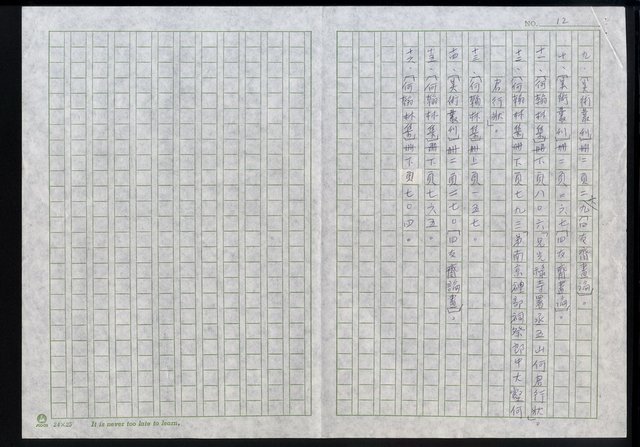 NO. 12
九、「美術叢刊」冊二頁二六九「四友齋畫論」。
十、「美術叢刊」冊二頁二六七「四友齋畫論」。
十一、「何翰林集」冊下頁八〇六「先兄光祿寺署丞五山何君行狀」。
十二、「何翰林集」冊下頁七九三「弟南京禮部祠祭郎中大壑何
君行狀」。
十三、「何翰林集」冊上頁一五七。
十四、「美術叢刊」冊二頁二七〇「四友齋論畫」。
十五、「何翰林集」冊下頁七六五。
十六、「何翰林集」冊下頁七〇四。
24×25 It is never too late to learn.